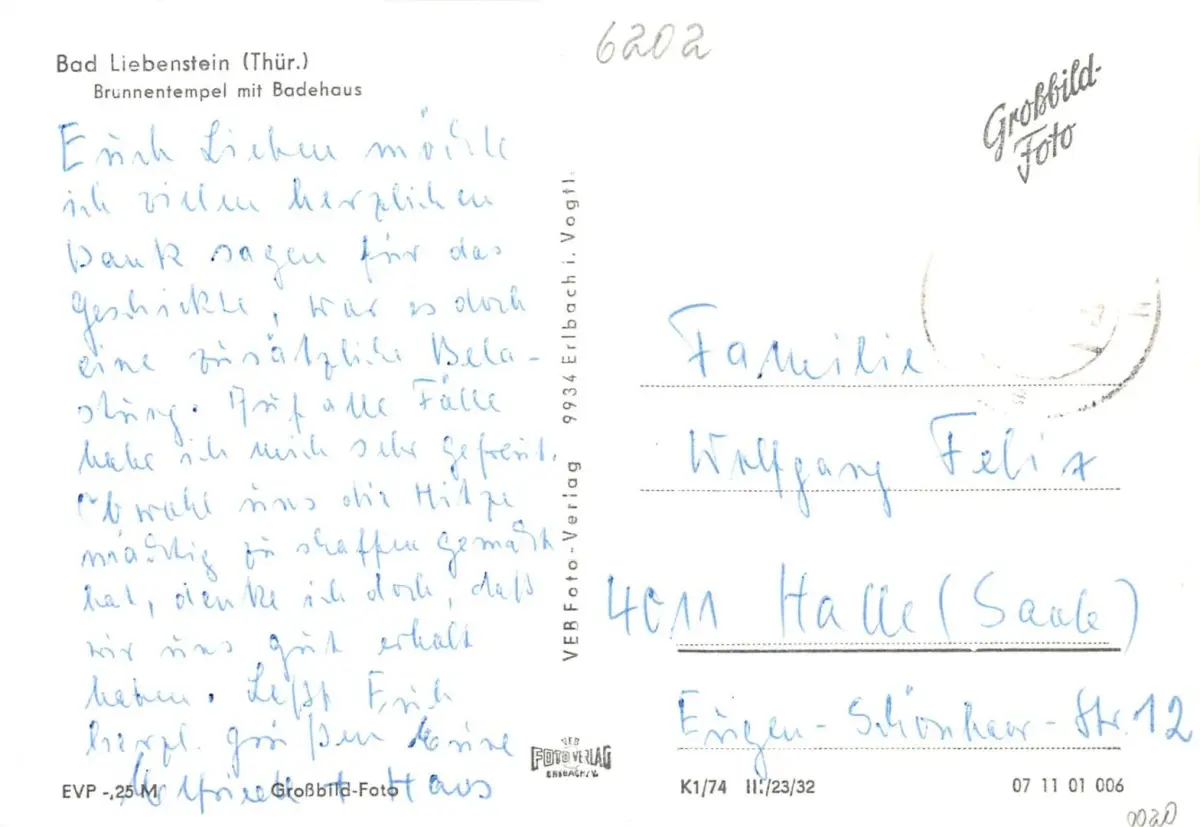 Bad Liebenstein (Thür.)
Brunnentempel mit Badehaus
Euch Lieben möchte
ich vielen herzlichen
Dank sagen für das
Geschickte, war es doch
eine zusätzliche Bela-
stung. Auf alle Fälle
habe ich mich sehr gefreut.
Obwohl uns die Hitze
mächtig zu schaffen gemacht
hat, denke ich doch, daß
wir uns gut erholt
haben. Laßt Euch
herzl. grüßen Eure
+ Haus
EVP -,25 M
Großbild-Foto
VEB Foto-Verlag 9934 Erlbach i. Vogtl.
VEB
FOTO VERLAG
ERLBACH/V.
6202
Großbild-
Foto
Familie
Wolfgang Felix
4011 Halle (Saale)
Eugen-Schönhaar-Str. 12
K1/74 III/23/32
07 11 01 006
0020